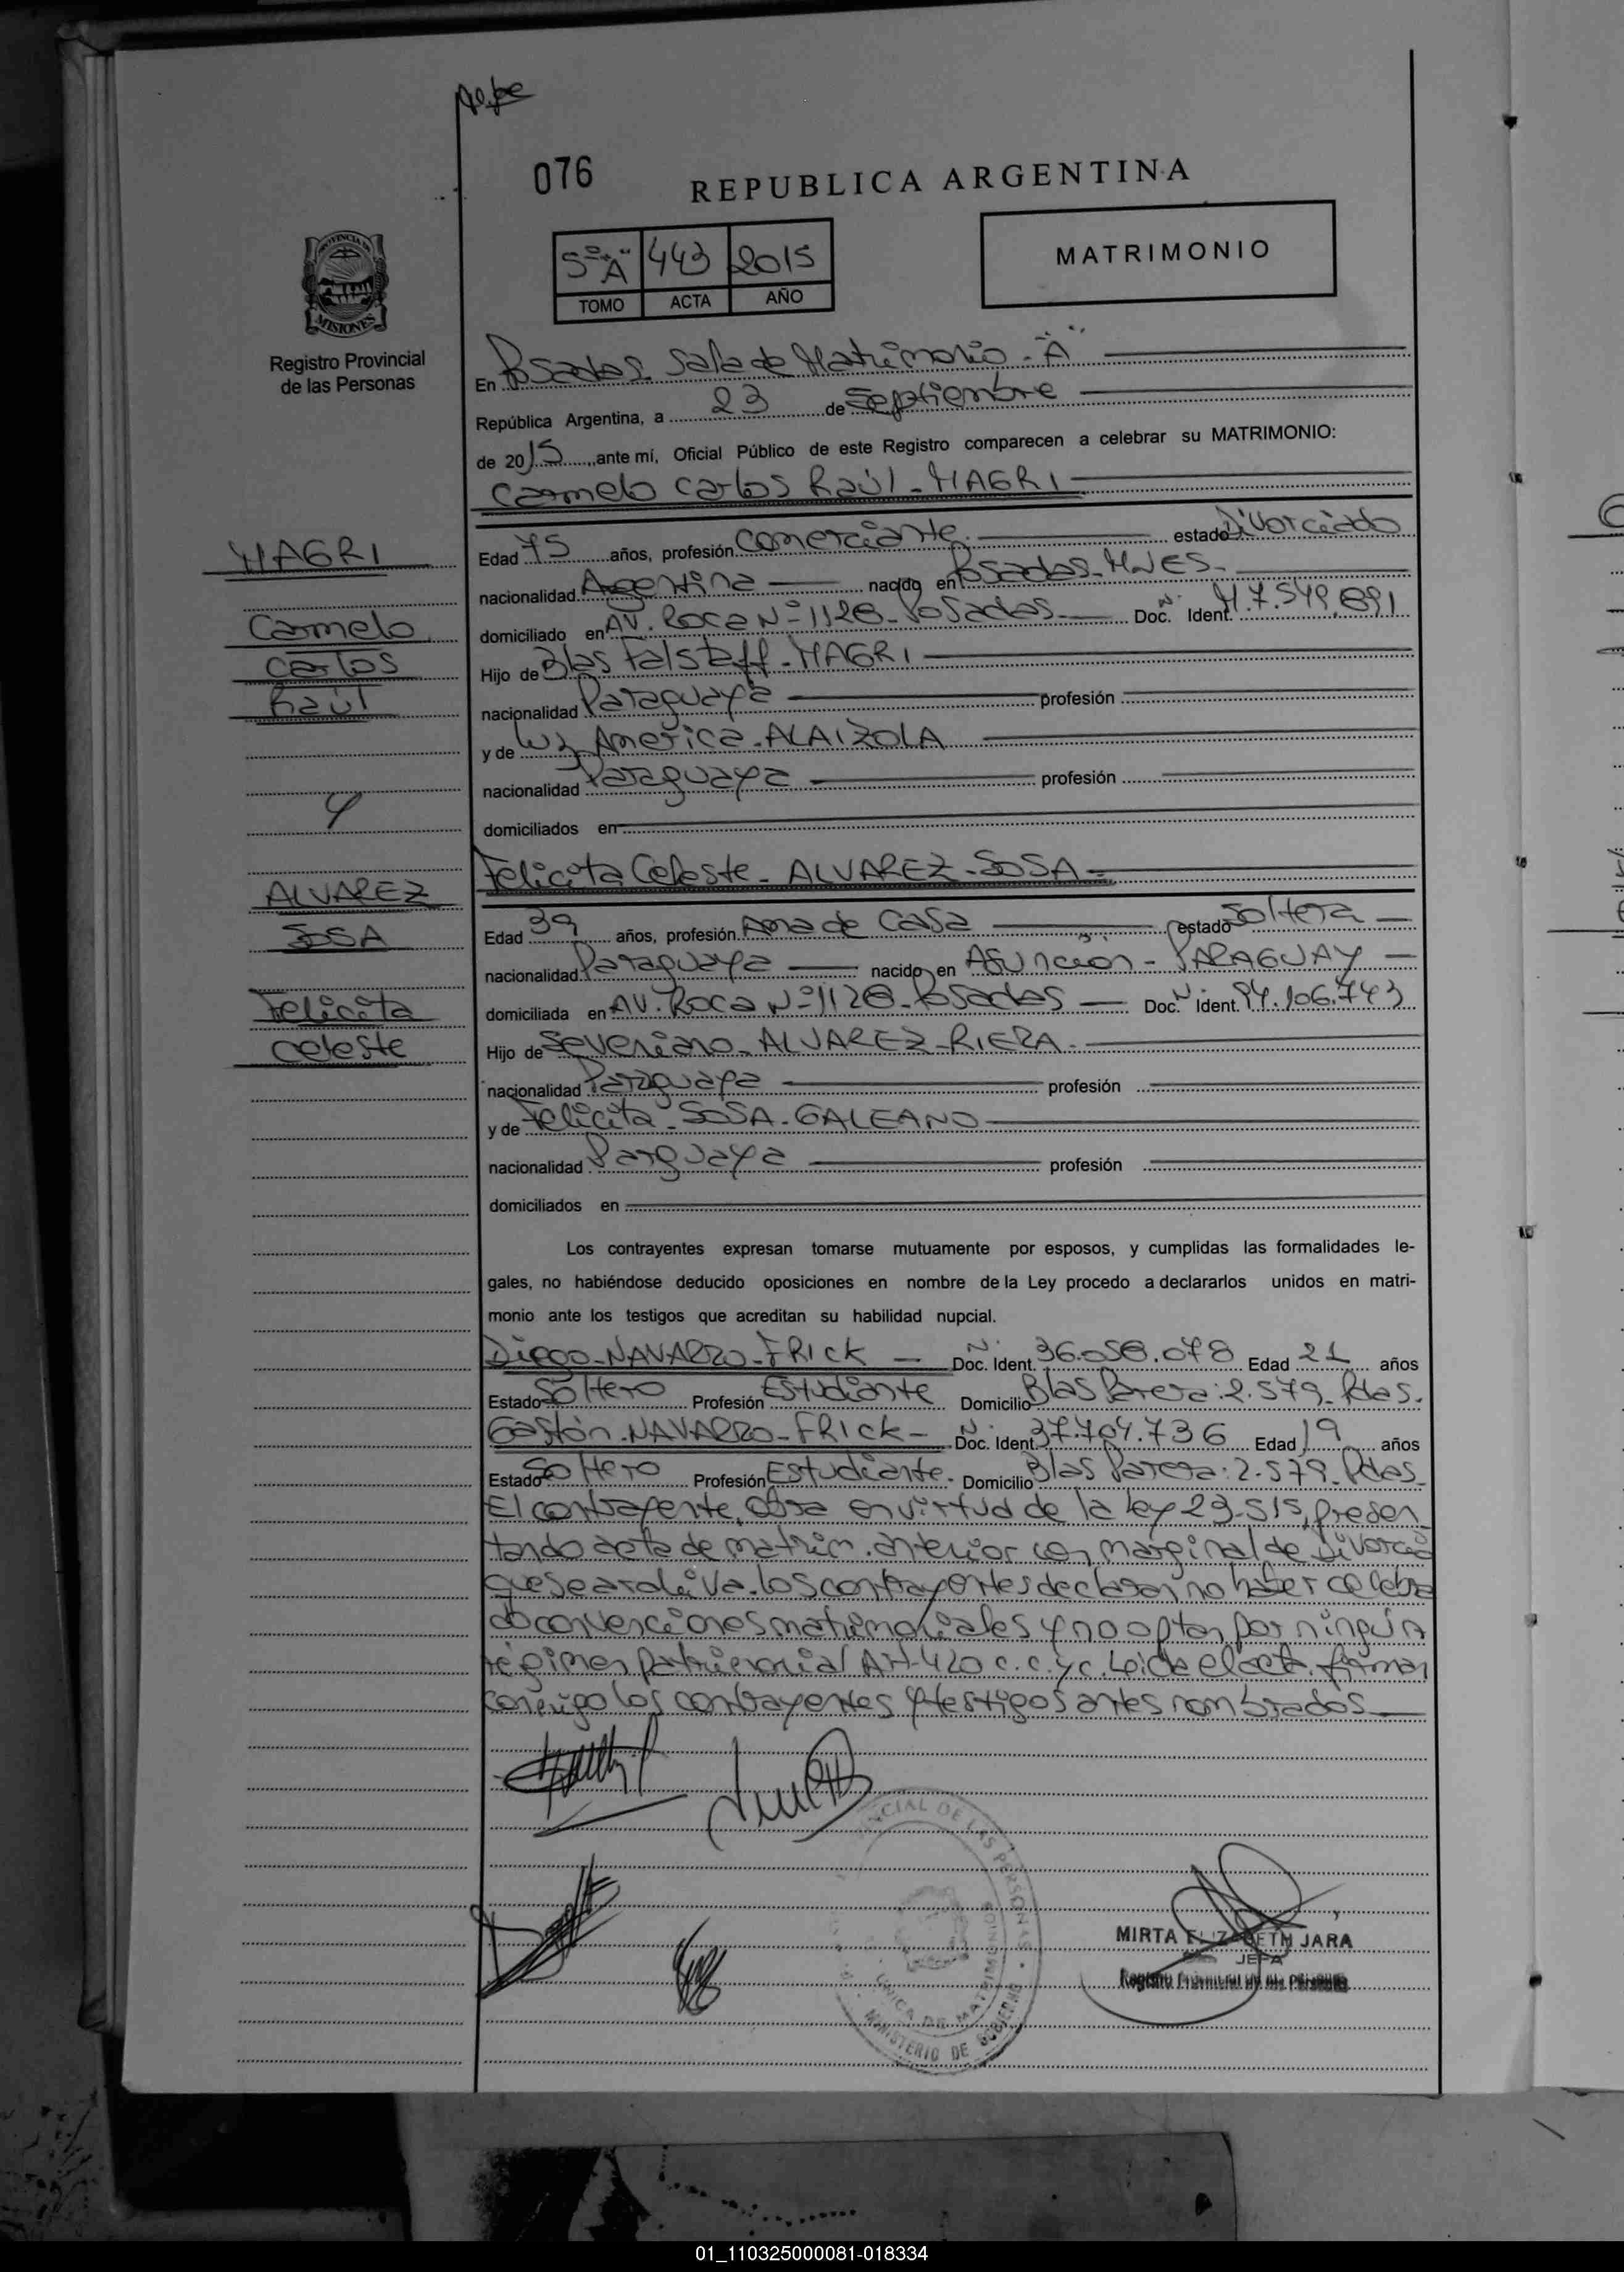 076
REPUBLICA ARGENTINA
5º "A" 443 2015
TOMO ACTA AÑO
MATRIMONIO
PROVINCIA DE
MISIONES
Registro Provincial
de las Personas
En Posadas. Sala de Matrimonio. "A"
República Argentina, a 23 de Septiembre
de 2015, ante mí, Oficial Público de este Registro comparecen a celebrar su MATRIMONIO:
Carmelo Carlos Raúl - MAGRI
MAGRI
Carmelo
Carlos
Raúl
Edad 75 años, profesión Comerciante. estado Divorciado
nacionalidad Argentina nacido en Posadas. MNES.
domiciliado en AV. Roca Nº 1128 - Posadas. Doc. Ident. M.7.549.891
Hijo de Blas Falstaff - MAGRI
nacionalidad Paraguaya profesión
y de Luz America - ALAIZOLA
nacionalidad Paraguaya profesión
domiciliados en
y
ALVAREZ
SOSA
Felicita
Celeste
Felicita Celeste - ALVAREZ - SOSA
Edad 39 años, profesión Ama de Casa estado Soltera
nacionalidad Paraguaya nacido en Asunción - PARAGUAY
domiciliada en AV. Roca Nº 1128 - Posadas Doc. Nº Ident. 94.106.743
Hijo de Severiano - ALVAREZ - RIERA.
nacionalidad Paraguaya profesión
y de Felicita - SOSA - GALEANO
nacionalidad Parguaya profesión
domiciliados en
Los contrayentes expresan tomarse mutuamente por esposos, y cumplidas las formalidades le-
gales, no habiéndose deducido oposiciones en nombre de la Ley procedo a declararlos unidos en matri-
monio ante los testigos que acreditan su habilidad nupcial.
Diego - NAVARRO - FRICK Nº Doc. Ident. 36.058.078 Edad 21 años
Estado Soltero Profesión Estudiante Domicilio Blas Parera: 2.579 - Pdas.
Gastón - NAVARRO - FRICK Nº Doc. Ident. 37.704.736 Edad 19 años
Estado Soltero Profesión Estudiante. Domicilio Blas Parera: 2.579 - Pdas.
El contrayente, obra en virtud de la ley 23.515, presen
tando acta de matrim. anterior con marginal de Divorcio
que se archiva. los contrayentes declaran no haber celebra
do convenciones matrimoniales y no optan por ningún
régimen patrimonial Art. 420 c.c. y c. Leida el acta. firman
conmigo los contrayentes y testigos antes nombrados
CIAL DE LAS PERSONAS
UNICA DE MATRIMONIOS
MINISTERIO DE GOBIERNO
MIRTA ELIZABETH JARA
JEFA
Registro Provincial de las Personas
01_110325000081-018334